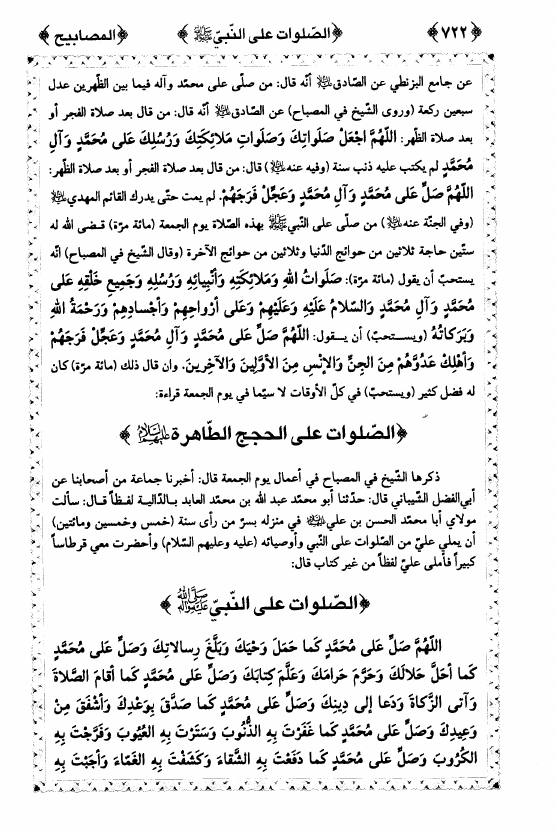 ﴿٧٢٢﴾ ﴿الصّلوات على النّبيّ ﷺ﴾ ﴿المصابيح﴾
عن جامع البزنطي عن الصادق عليه السلام أنّه قال: من صلّى على محمّد وآله فيما بين الظهرين عدل
سبعين ركعة (وروى الشّيخ في المصباح) عن الصّادق عليه السلام أنّه قال: من قال بعد صلاة الفجر أو
بعد صلاة الظهر: اَللّهُمَّ اجْعَلْ صَلَواتِكَ وَصَلَواتِ مَلائِكَتِكَ وَرُسُلِكَ عَلى مُحَمَّدٍ وَآلِ
مُحَمَّدٍ لم يكتب عليه ذنب سنة (وفيه عنه عليه السلام) قال: من قال بعد صلاة الفجر أو بعد صلاة الظهر:
اَللّهُمَّ صَلِّ عَلى مُحَمَّدٍ وَآلِ مُحَمَّدٍ وَعَجِّلْ فَرَجَهُمْ. لم يمت حتّى يدرك القائم المهدي عليه السلام
(وفي الجنّة عنه عليه السلام) من صلّى على النّبيّ ﷺ بهذه الصّلاة يوم الجمعة (مائة مرّة) قـضى الله له
ستّين حاجة ثلاثين من حوائج الدّنيا وثلاثين من حوائج الآخرة (وقال الشّيخ في المصباح) انّه
يستحبّ أن يقول (مائة مرّة): صَلَواتُ اللهِ وَمَلائِكَتِهِ وَأَنْبِيائِهِ وَرُسُلِهِ وَجَمِيعِ خَلْقِهِ عَلى
مُحَمَّدٍ وَآلِ مُحَمَّدٍ وَالسَّلامُ عَلَيْهِ وَعَلَيْهِمْ وَعَلى أَرْواحِهِمْ وَأَجْسادِهِمْ وَرَحْمَةُ اللهِ
وَبَرَكاتُهُ (ويسـتحبّ) أن يـقول: اَللّهُمَّ صَلِّ عَلى مُحَمَّدٍ وَآلِ مُحَمَّدٍ وَعَجِّلْ فَرَجَهُمْ
وَأَهْلِكْ عَدُوَّهُمْ مِنَ الجِنِّ وَالإنْسِ مِنَ الأَوَّلِينَ وَالآخِرِينَ. وان قال ذلك (مائة مرّة) كان
له فضل كثير (ويستحبّ) في كلّ الأوقات لا سيّما في يوم الجمعة قراءة:
﴿الصّلوات على الحجج الطّاهرة عليهم السلام﴾
ذكرها الشّيخ في المصباح في أعمال يوم الجمعة قال: أخبرنا جماعة من أصحابنا عن
أبي‌الفضل الشّيباني قال: حدّثنا أبو محمّد عبد الله بن محمّد العابد بـالدّالية لفظاً قـال: سألت
مولاي أبا محمّد الحسن بن علي عليه السلام في منزله بسرّ من رأى سنة (خمس وخمسين ومائتين)
أن يملي عليّ من الصّلوات على النّبي وأوصيائه (عليه وعليهم السّلام) وأحضرت معي قرطاساً
كبيراً فأملى عليّ لفظاً من غير كتاب قال:
﴿الصّلوات على النّبيّ صلى الله عليه وآله﴾
اَللّهُمَّ صَلِّ عَلى مُحَمَّدٍ كَما حَمَلَ وَحْيَكَ وَبَلَّغَ رِسالاتِكَ وَصَلِّ عَلى مُحَمَّدٍ
كَما أَحَلَّ حَلالَكَ وَحَرَّمَ حَرامَكَ وَعَلَّمَ كِتابَكَ وَصَلِّ عَلى مُحَمَّدٍ كَما أَقامَ الصَّلاةَ
وَآتى الزَّكاةَ وَدَعا إلى دِينِكَ وَصَلِّ عَلى مُحَمَّدٍ كَما صَدَّقَ بِوَعْدِكَ وَأَشْفَقَ مِنْ
وَعِيدِكَ وَصَلِّ عَلى مُحَمَّدٍ كَما غَفَرْتَ بِهِ الذُّنُوبَ وَسَتَرْتَ بِهِ العُيُوبَ وَفَرَّجْتَ بِهِ
الكُرُوبَ وَصَلِّ عَلى مُحَمَّدٍ كَما دَفَعْتَ بِهِ الشَّقاءَ وَكَشَفْتَ بِهِ الغَمّاءَ وَأَجَبْتَ بِهِ